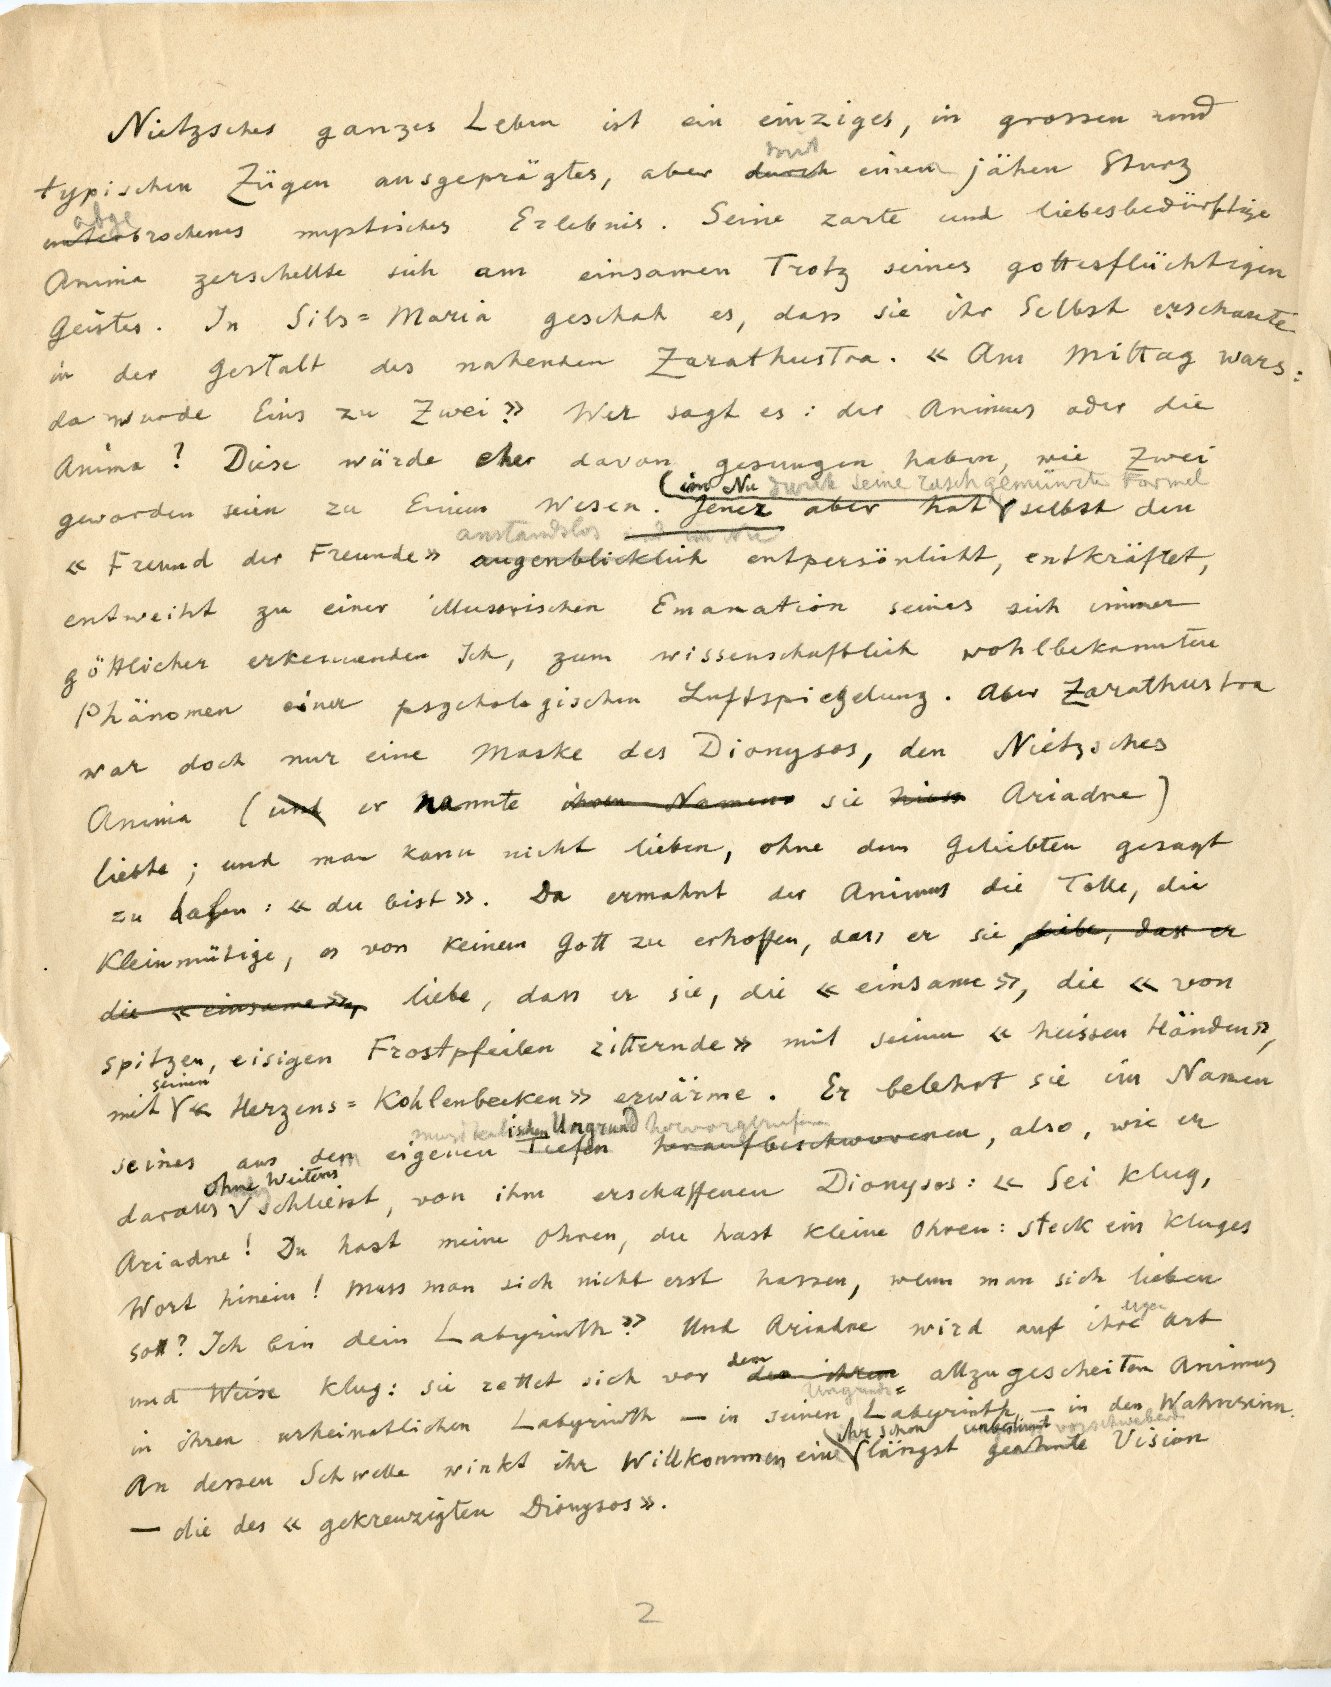 Nietzsches ganzes Leben ist ein einziges, in grossen und
typischen Zügen ausgeprägtes, aber durch mit einem jähen Sturz
unterbrochenes abge mystisches Erlebnis. Seine zarte und liebesbedürftige
Anima zerschellte sich am einsamen Trotz seines gottesflüchtigen
Geistes. In Sils=Maria geschah es, dass sie ihr Selbst erschaute
in der Gestalt des nahenden Zarathustra. « Am Mittag wars:
da wurde Eins zu Zwei ». Wer sagt es: der Animus oder die
Anima? Diese würde eher davon gesungen haben, wie Zwei
(im Nu durch seine rasch gemünzte Formel
geworden seien zu Einem Wesen. Jener aber hat selbst den
anstandslos
« Freund der Freunde » augenblicklich entpersönlicht, entkräftet,
entweiht zu einer illusorischen Emanation seines sich immer
göttlicher erkennenden Ich, zum wissenschaftlich wohlbekannten
Phänomen einer psychologischen Luftspiegelung. Aber Zarathustra
war doch nur eine Maske des Dionysos, den Nietzsches
Anima (und er nannte ihren Namen sie hiess Ariadne)
liebte; und man kann nicht lieben, ohne dem Geliebten gesagt
zu haben: « du bist ». Da ermahnt der Animus die Tolle, die
Kleinmütige, es von keinem Gott zu erhoffen, dass er sie liebe, dass er
die « einsame », liebe, dass er sie, die « einsame », die « von
spitzen, eisigen Frostpfeilen zitternde » mit seinen « heissen Händen »,
seinen
mit « Herzens=Kohlenbecken » erwärme. Er belehrt sie im Namen
musikalischen Ungrund hervorgerufenen
seines aus dem eigenen Tiefen heraufbeschworenen, also, wie er
ohne Weiteres
daraus schliesst, von ihm erschaffenen Dionysos: « Sei klug,
Ariadne! Du hast meine Ohren, du hast kleine Ohren: steck ein kluges
Wort hinein! Muss man sich nicht erst hassen, wenn man sich lieben
soll? Ich bin dein Labyrinth ». Und Ariadne wird auf ihre Art
und Weise klug: sie rettet sich vor dem den ihren allzugescheiten Animus
Ungrunds=
in ihren urheimatlichen Labyrinth — in seinen Labyrinth — in den Wahnsinn.
ihr schon unbestimmt vorschwebende
An dessen Schwelle winkt ihr Willkommen eine längst geahnte Vision
— die des « gekreuzigten Dionysos ».
2